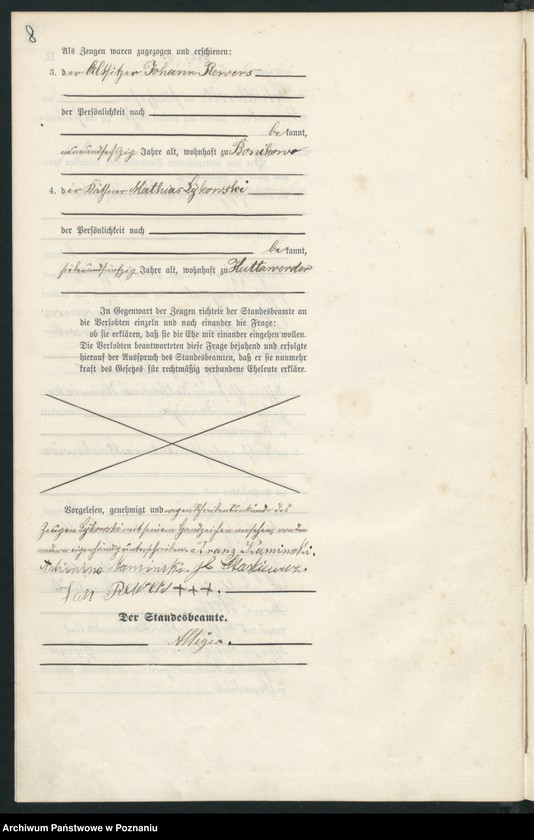 8
Als Zeugen waren zugezogen und erschienen:
3. der Altsitzer Johann Rewers
der Persönlichkeit nach
bekannt,
neunundsechzig Jahre alt, wohnhaft zu Bonikowo
4. der Käthner Mathias Lykowski
der Persönlichkeit nach
bekannt,
siebenundfünfzig Jahre alt, wohnhaft zu Huttawerder
In Gegenwart der Zeugen richtete der Standesbeamte an
die Verlobten einzeln und nach einander die Frage:
ob sie erklären, daß sie die Ehe mit einander eingehen wollen.
Die Verlobten beantworteten diese Frage bejahend und erfolgte
hierauf der Ausspruch des Standesbeamten, daß er sie nunmehr
kraft des Gesetzes für rechtmäßig verbundene Eheleute erkläre.
Vorgelesen, genehmigt und wegen Schreibensunkunde des
Zeugen Lykowski mit seinem Handzeichen versehen, von den
andern eigenhändig unterschrieben. Franz Kaminski.
Kaminski. geb. Stankiewicz.
Rewers +++.
Der Standesbeamte.
Archiwum Państwowe w Poznaniu